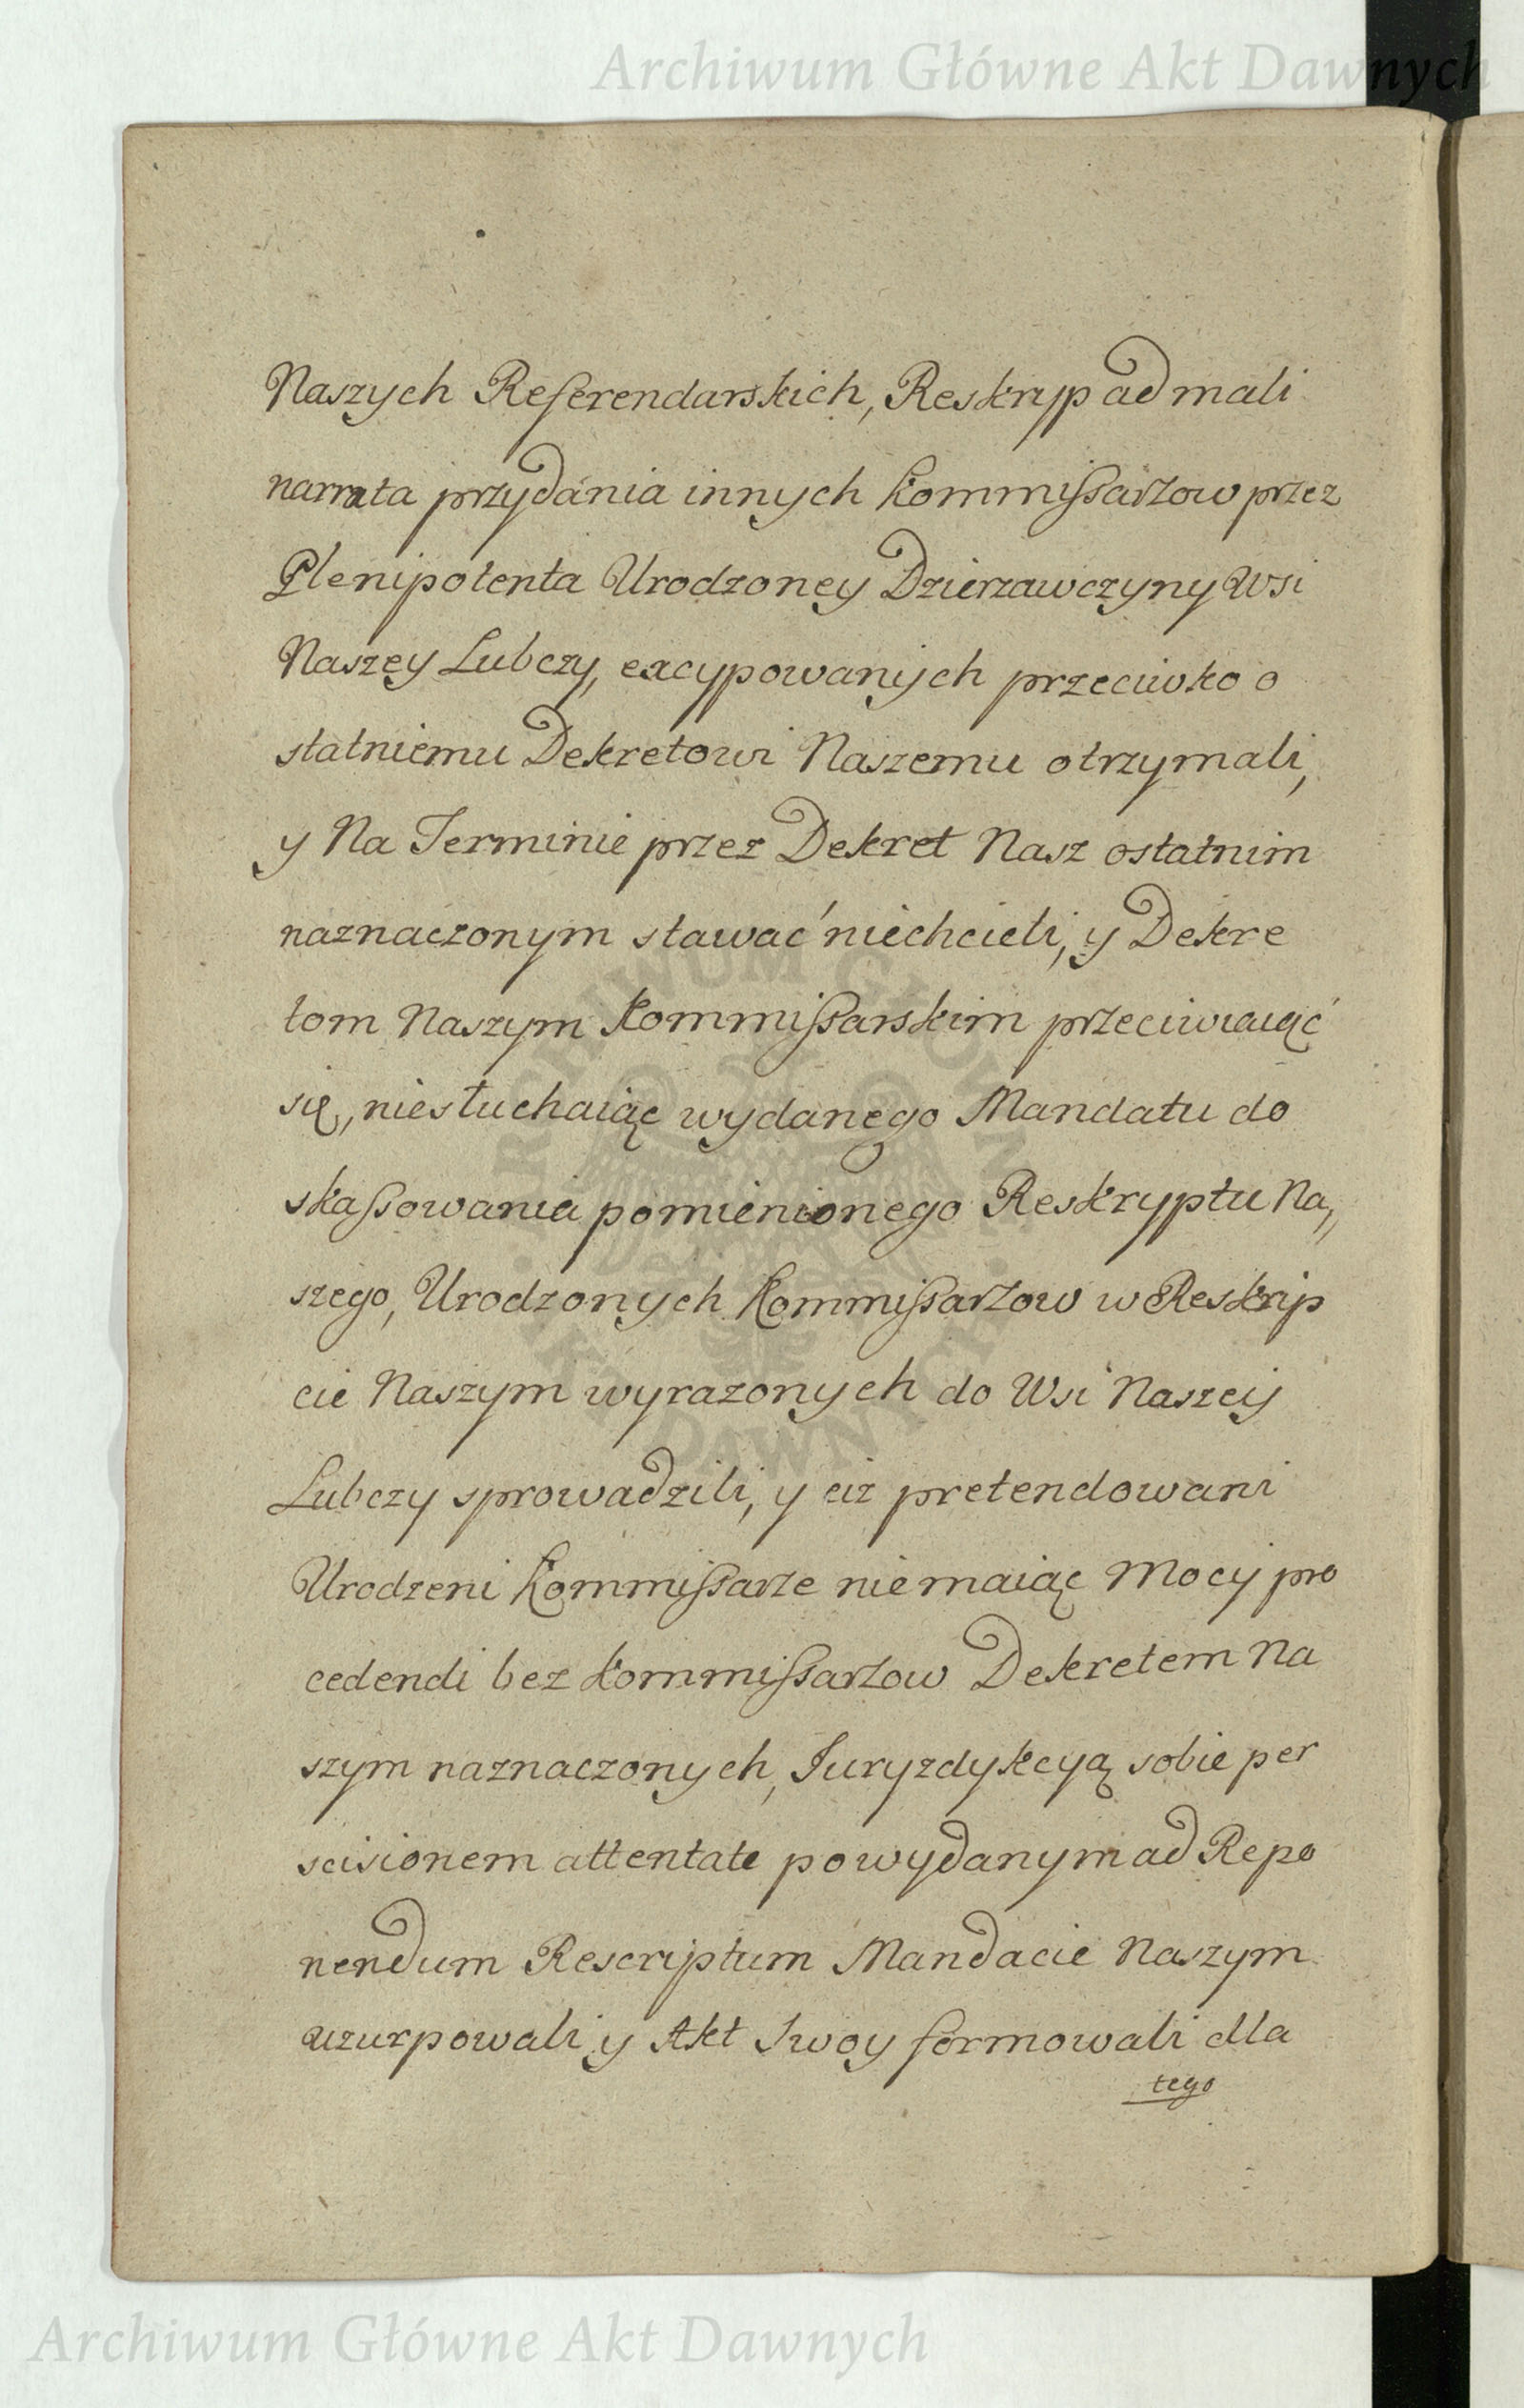 Archiwum Główne Akt Dawnych
Naszych Referendarskich, Reskryp ad mali
narrata przydánia innych Kommißarzow przez
Plenipotenta Urodzoney Dzierzawczyny Wsi
Naszey Lubczy, excypowanych przeciwko o
statniemu Dekretowi Naszemu otrzymali,
y Na Terminie przez Dekret Nasz ostatnim
naznaczonym stawać niechcieli, y Dekre
tom Naszym Kommißarskim przeciwiaiąć
się, niesłuchaiąc wydanego Mandatu do
skaßowania pomienionego Reskryptu Na„
szego, Urodzonych Kommißarzow w Reskrip
cie Naszym wyrazonych do Wsi Naszey
Lubczy sprowadzili, y ciz pretendowani
Urodzeni Kommißarze niemaiąc Mocy pro
cedendi bez Kommißarzow Dekretem Na
szym naznaczonych, Juryzdykcyą sobie per
scisionem attentate powydanym ad Repo
nendum Rescriptum Mandacie Naszym
uzurpowali, y Akt Swoy formowali dla
tego
ARCHIWUM GŁÓWNE AKT DAWNYCH
Archiwum Główne Akt Dawnych